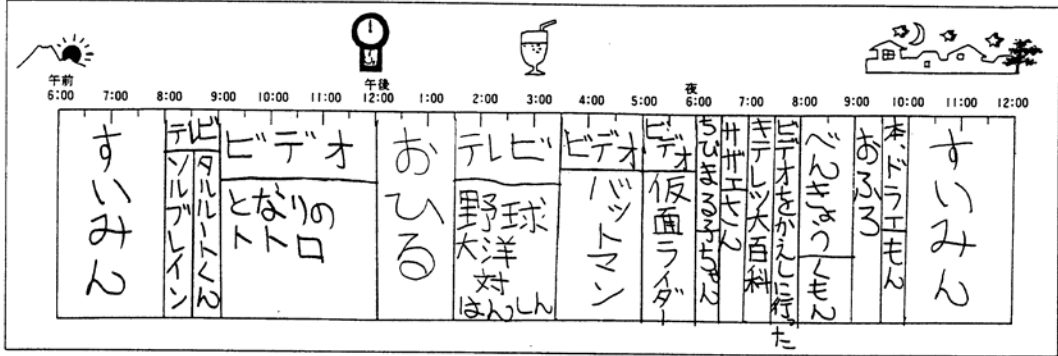 午前
午後
夜
6:00 7:00 8:00 9:00 10:00 11:00 12:00 1:00 2:00 3:00 4:00 5:00 6:00 7:00 8:00 9:00 10:00 11:00 12:00
すいみん
テレビ
ソルブレイン
タルルートくん
ビデオ
となりの
トトロ
おひる
テレビ
野球
大洋
対
はんしん
ビデオ
バットマン
ビデオ
仮面ライダー
ちびまる子ちゃん
サザエさん
キテレツ大百科
ビデオをかえしに行った
べんきょう
くもん
おふろ
本、ドラエもん
すいみん